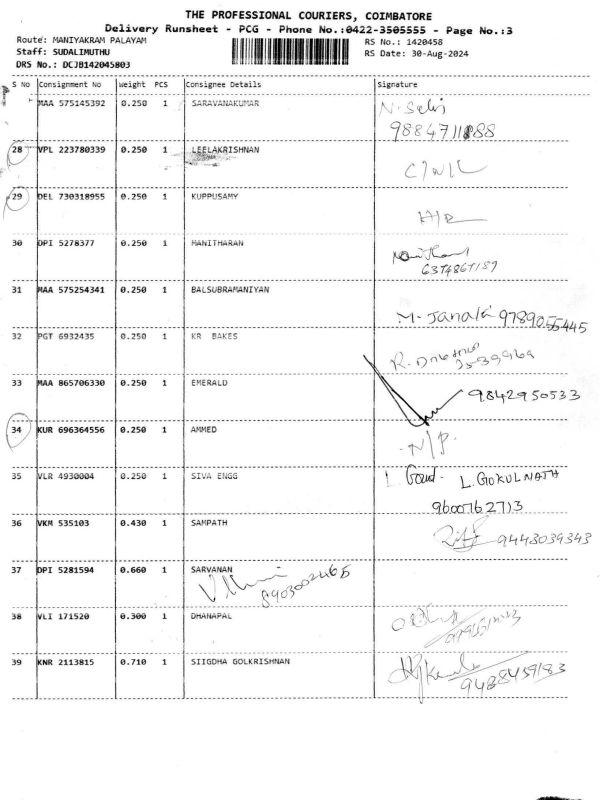 THE PROFESSIONAL COURIERS, COIMBATORE
Delivery Runsheet - PCG - Phone No.:0422-3505555 - Page No.:3
Route: MANIYAKRAM PALAYAM
RS No.: 1420458
Staff: SUDALIMUTHU
RS Date: 30-Aug-2024
DRS No.: DCJB142045803
S No Consignment No Weight PCS Consignee Details Signature
MAA 575145392 0.250 1 SARAVANAKUMAR N. Selvi
28 VPL 223780339 0.250 1 LEELAKRISHNAN
29 DEL 730318955 0.250 1 KUPPUSAMY
30 DPI 5278377 0.250 1 MANITHARAN
6374867189
31 MAA 575254341 0.250 1 BALSUBRAMANIYAN
M. Janaki 9789055445
32 PGT 6932435 0.250 1 KR BAKES
33 MAA 865706330 0.250 1 EMERALD
9842950533
34 KUR 696364556 0.250 1 AMMED
N/P.
35 VLR 4930004 0.250 1 SIVA ENGG L. GOKULNATH
9600762713
36 VKM 535103 0.430 1 SAMPATH
9443039343
37 DPI 5281594 0.660 1 SARVANAN
8903002465
38 VLI 171520 0.300 1 DHANAPAL
39 KNR 2113815 0.710 1 SIIGDHA GOLKRISHNAN
9488459183